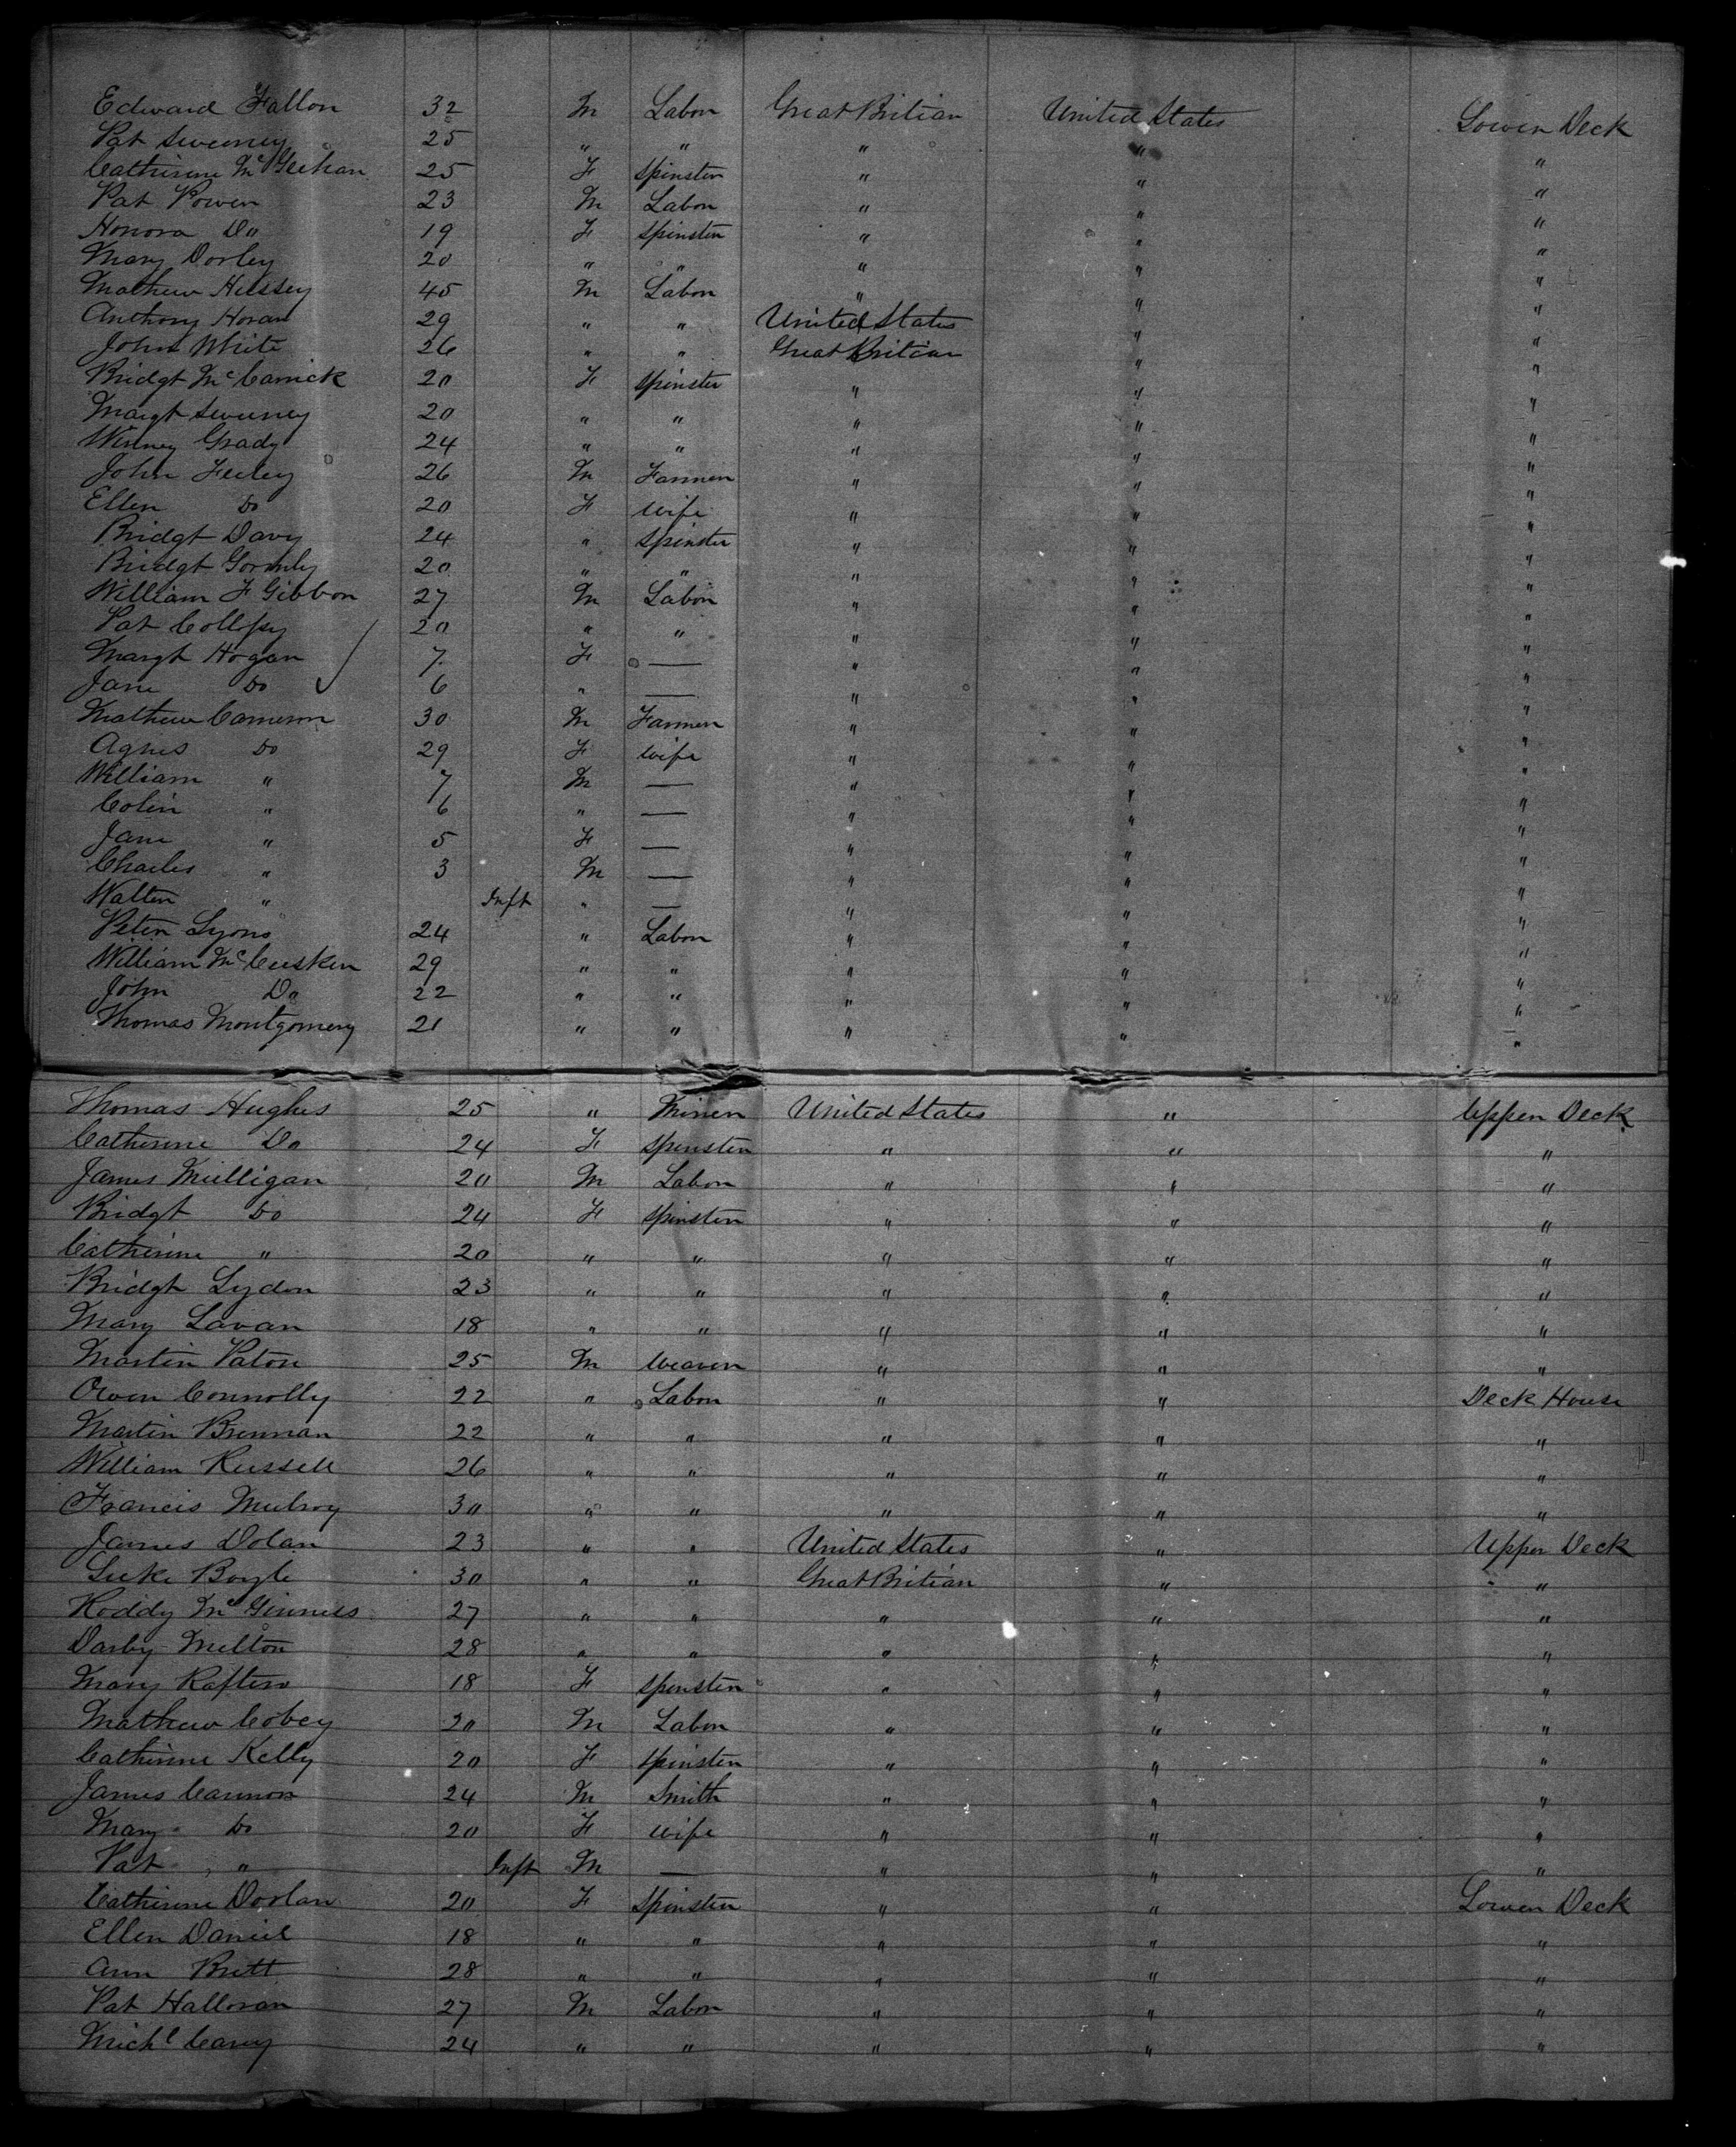 Edward Fallon 32 M Labor Great Britian United States Lower Deck
Pat Sweeney 25 " " " " "
Catherine McGeehan 25 F Spinster " " "
Pat Power 23 M Labor " " "
Honora Do 19 F Spinster " " "
Mary Dorley 20 " " " " "
Mathew Hussey 45 M Labor " " "
Anthony Horan 29 " " United States " "
John White 26 " " Great Britian " "
Bridgt McCarrick 20 F Spinster " " "
Margt Sweeney 20 " " " " "
Winney Grady 24 " " " " "
John Feeley 26 M Farmer " " "
Ellen Do 20 F Wife " " "
Bridgt Davy 24 " Spinster " " "
Bridgt Gormly 20 " " " " "
William F Gibbon 27 M Labor " " "
Pat Collopy 20 " " " " "
Margt Hogan 7 F — " " "
Jane Do 6 " — " " "
Mathew Cameron 30 M Farmer " " "
Agnes Do 29 F Wife " " "
William " 7 M — " " "
Colin " 6 " — " " "
Jane " 5 F — " " "
Charles " 3 M — " " "
Walter " Inft " — " " "
Peter Lyons 24 " Labor " " "
William McCusker 29 " " " " "
John Do 22 " " " " "
Thomas Montgomery 21 " " " " "
Thomas Hughes 25 " Miner United States " Upper Deck
Catherine Do 24 F Spinster " " "
James Mulligan 20 M Labor " " "
Bridgt Do 24 F Spinster " " "
Catherine " 20 " " " " "
Bridgt Lydon 23 " " " " "
Mary Lavan 18 " " " " "
Martin Paton 25 M Weaver " " "
Owen Connolly 22 " Labor " " Deck House
Martin Brennan 22 " " " " "
William Russell 26 " " " " "
Francis Mulroy 30 " " " " "
James Dolan 23 " " United States " Upper Deck
Luke Boyle 30 " " Great Britian " "
Roddy McGinnies 27 " " " " "
Darby Melton 28 " " " " "
Mary Rafter 18 F Spinster " " "
Mathew Cobey 20 M Labor " " "
Catherine Kelly 20 F Spinster " " "
James Cannon 24 M Smith " " "
Mary Do 20 F Wife " " "
Pat " Inft M — " " "
Catherine Doolan 20 F Spinster " " Lower Deck
Ellen Daniel 18 " " " " "
Ann Britt 28 " " " " "
Pat Halloran 27 M Labor " " "
Michl Carey 24 " " " " "